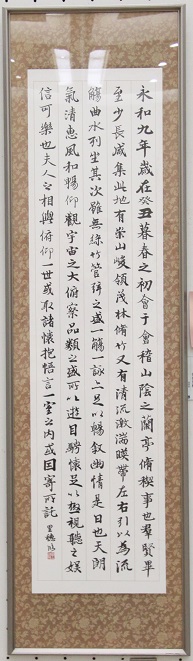 永和九年歲在癸丑暮春之初會于會稽山陰之蘭亭脩禊事也羣賢畢
至少長咸集此地有崇山峻領茂林脩竹又有清流激湍暎帶左右引以為流
觴曲水列坐其次雖無絲竹管弦之盛一觴一詠亦足以暢叙幽情是日也天朗
氣清惠風和暢仰觀宇宙之大俯察品類之盛所以遊目騁懷足以極視聽之娛
信可樂也夫人之相與俯仰一世或取諸懷抱悟言一室之內或因寄所託